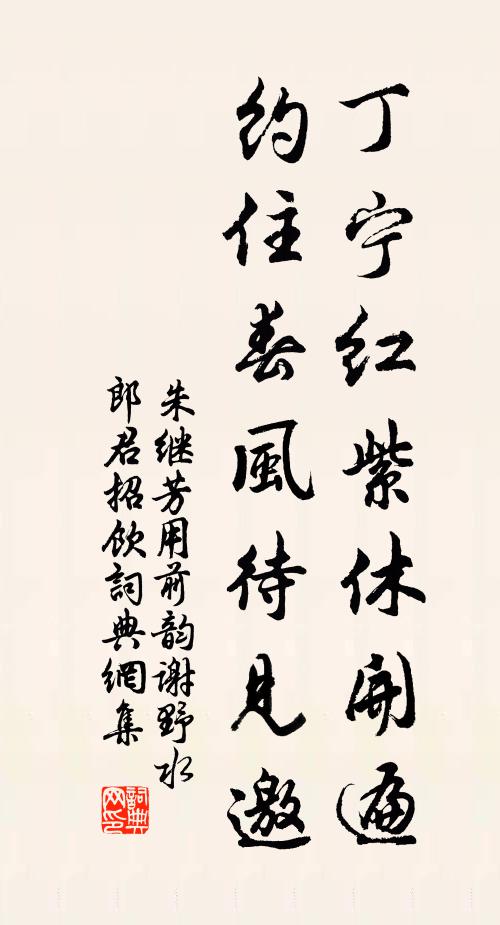 丁宁红紫休開遍
約住春風待見邀
朱继芳用前韵谢野水
郎君招飲詞典網集
詞典网印